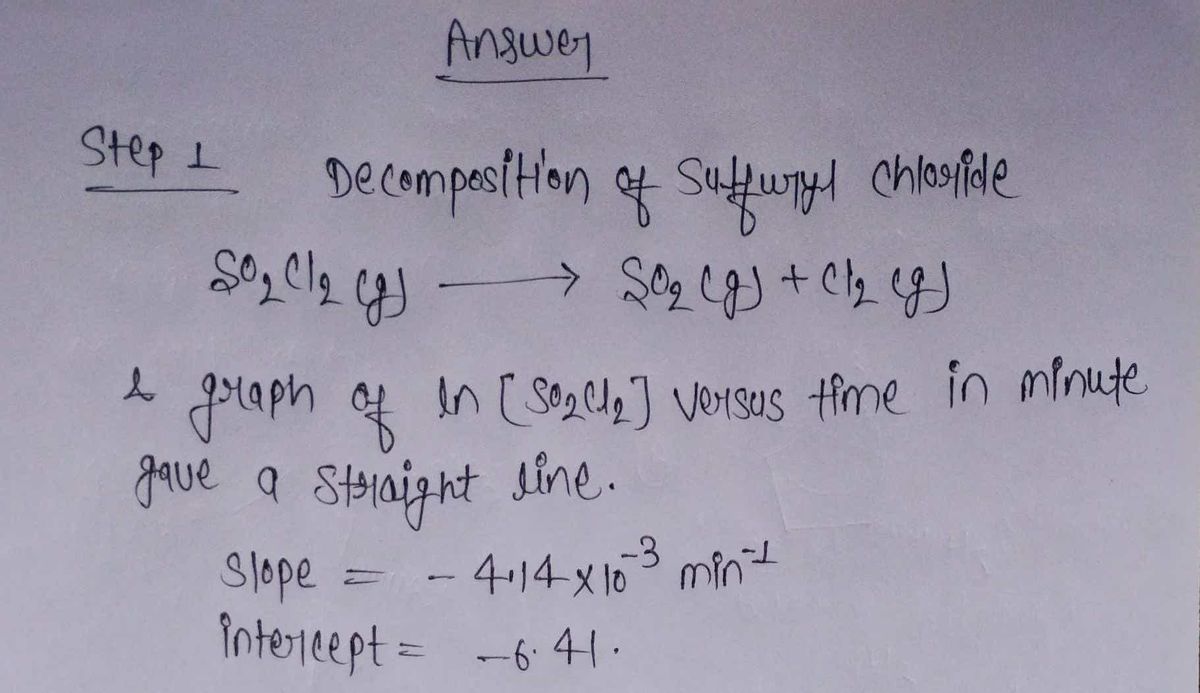 Answer
Step 1 Decomposition of Sulfuryl chloride
SO₂Cl₂ (g) ⟶ SO₂ (g) + Cl₂ (g)
& graph of ln [SO₂Cl₂] versus time in minute
gave a straight line.
Slope = - 4.14 × 10⁻³ min⁻¹
intercept = -6.41.